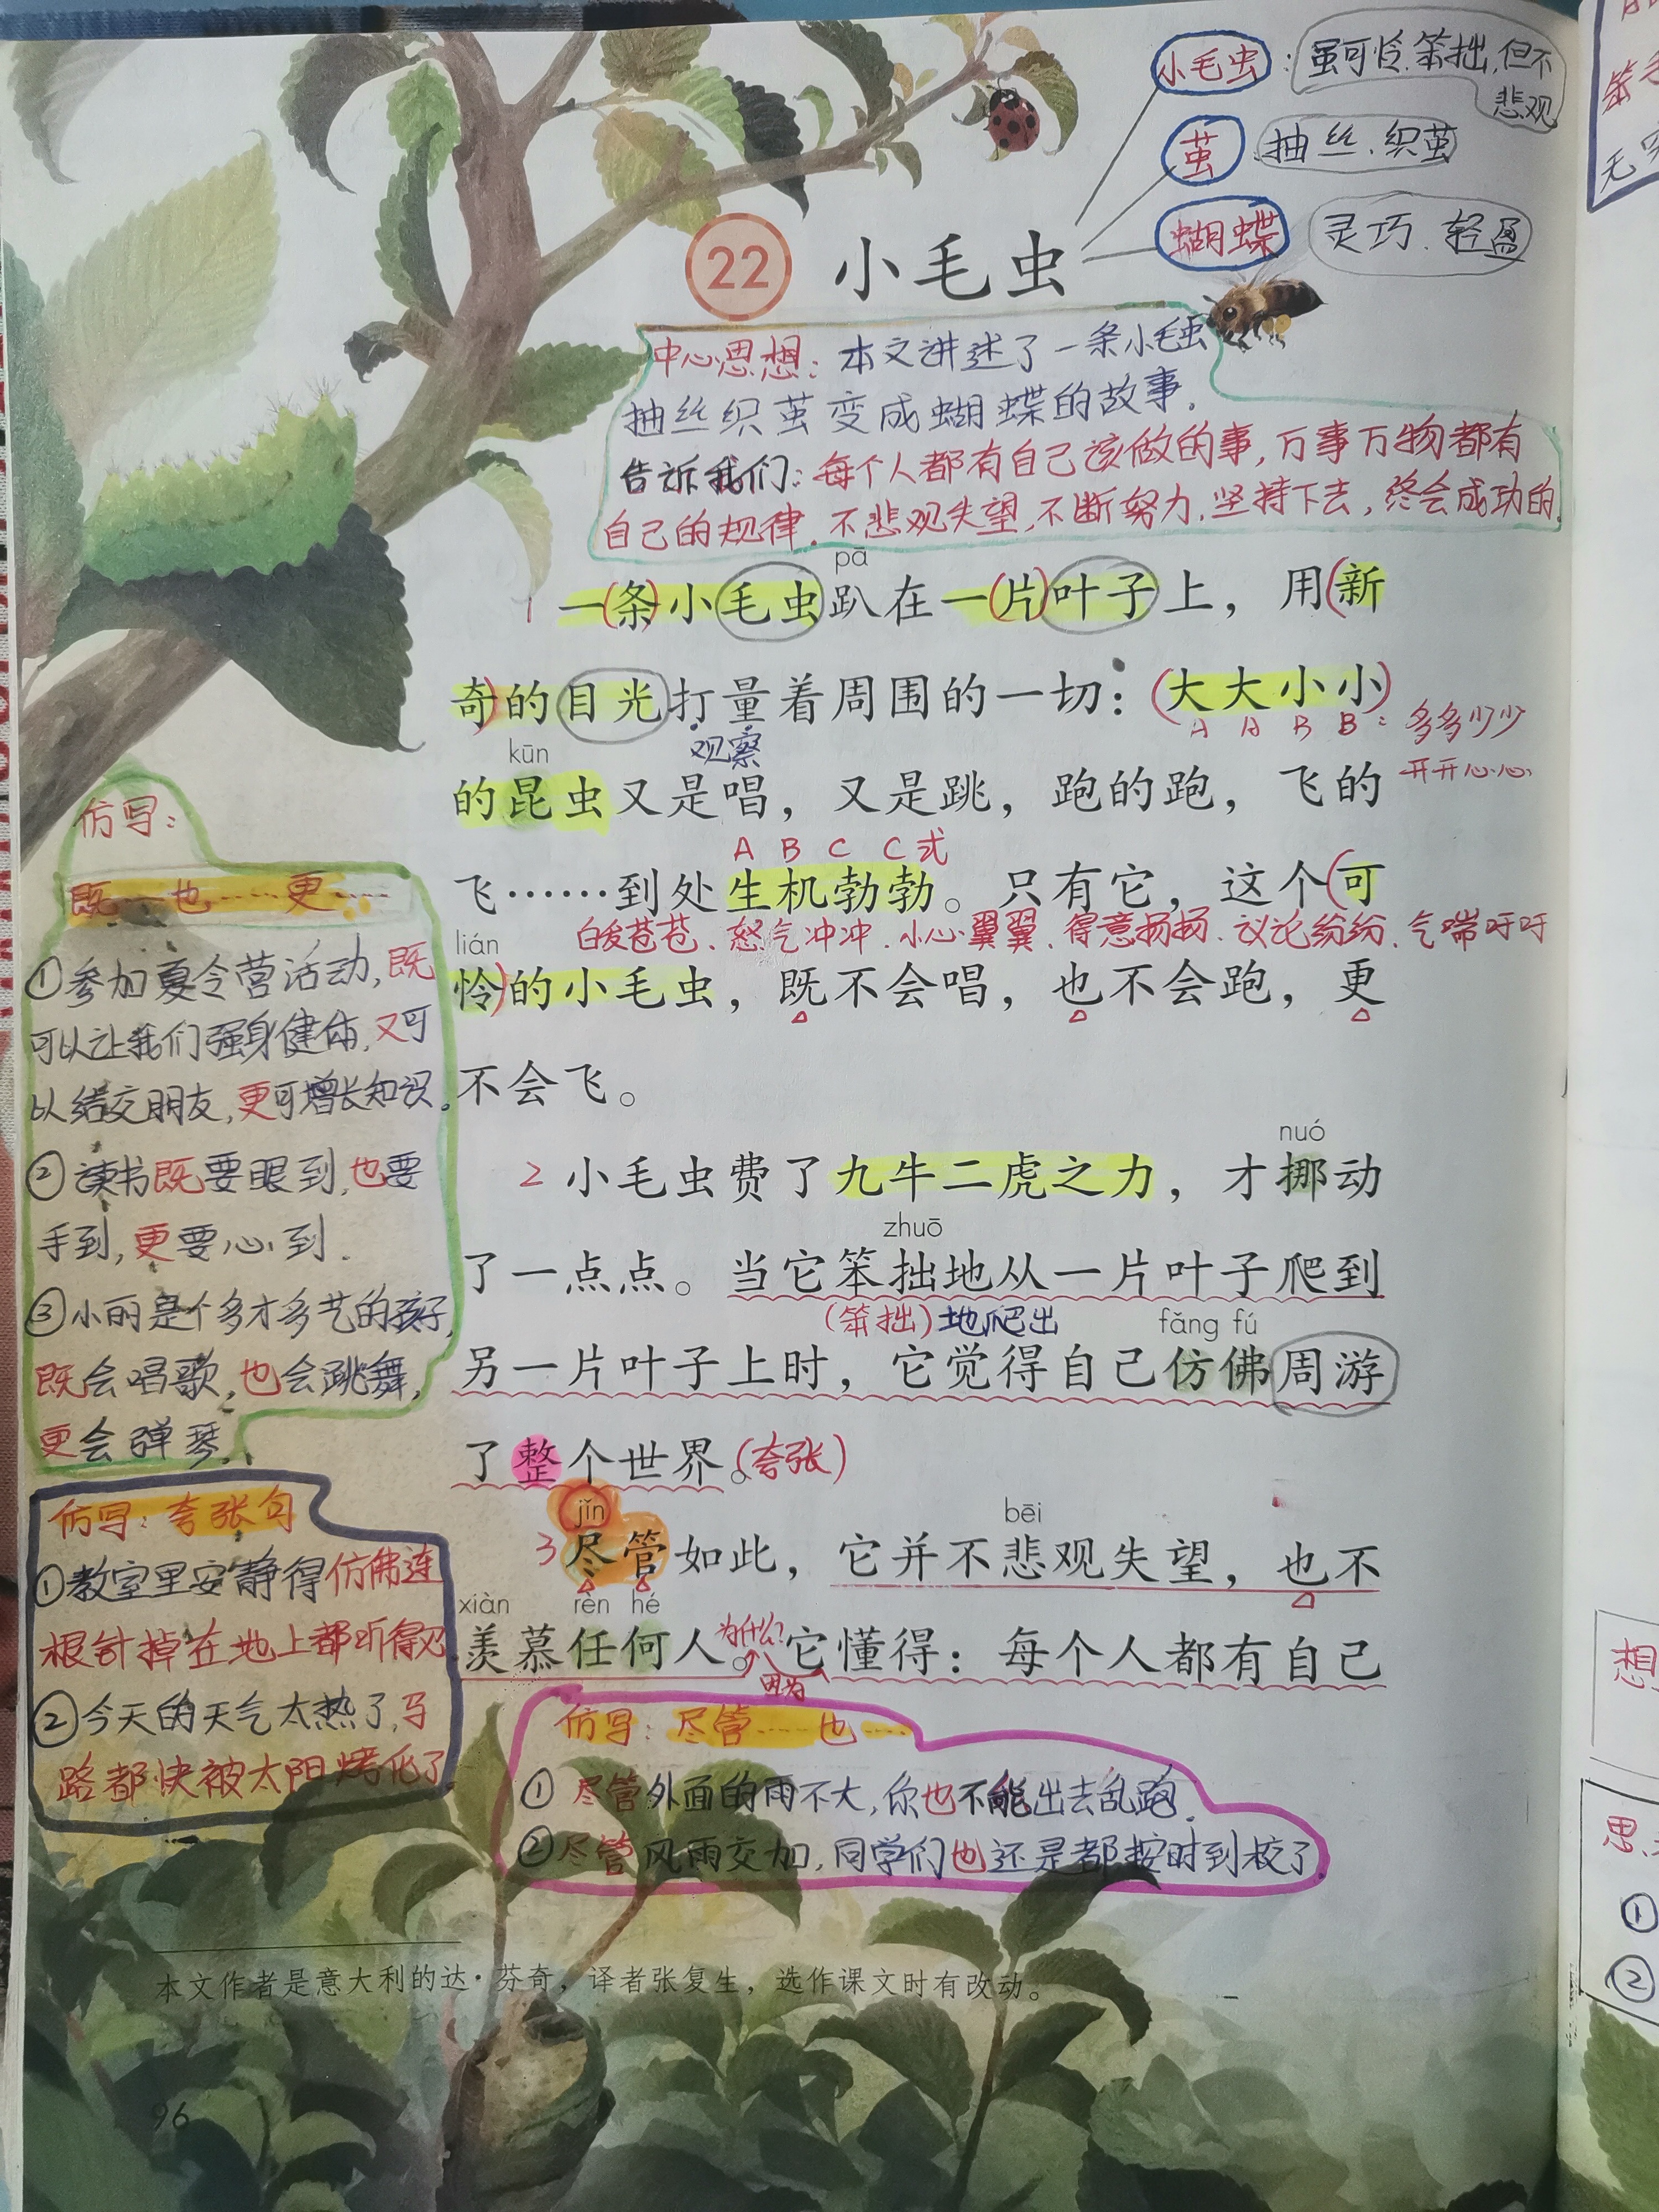 小毛虫：虽可怜.笨拙,但不
悲观
茧 抽丝.织茧
蝴蝶 灵巧.轻盈
22 小毛虫
中心思想：本文讲述了一条小毛虫
抽丝织茧变成蝴蝶的故事.
告诉我们：每个人都有自己该做的事,万事万物都有
自己的规律.不悲观失望,不断努力,坚持下去,终会成功的.
pā
1 一(条)小毛虫趴在一(片)叶子上，用(新
奇)的目光打量着周围的一切：(大大小小)
观察
A A B B：多多少少
开开心心
kūn
的昆虫又是唱，又是跳，跑的跑，飞的
A B C C式
飞……到处生机勃勃。只有它，这个(可
白发苍苍、怒气冲冲、小心翼翼、得意扬扬、议论纷纷、气喘吁吁
lián
怜)的小毛虫，既不会唱，也不会跑，更
不会飞。
nuó
2 小毛虫费了九牛二虎之力，才挪动
zhuō
了一点点。当它笨拙地从一片叶子爬到
(笨拙)地爬出
fǎng fú
另一片叶子上时，它觉得自己仿佛周游
了整个世界。(夸张)
jǐn bēi
3 尽管如此，它并不悲观失望，也不
xiàn rèn hé
羡慕任何人。它懂得：每个人都有自己
为什么?
因为
仿写：
既……也……更……
①参加夏令营活动,既
可以让我们强身健体,又可
以结交朋友,更可增长知识.
②读书既要眼到,也要
手到,更要心到.
③小丽是个多才多艺的孩子,
既会唱歌,也会跳舞,
更会弹琴.
仿写：夸张句
①教室里安静得仿佛连
根针掉在地上都听得见.
②今天的天气太热了,马
路都快被太阳烤化了.
仿写：尽管……也……
①尽管外面的雨不大,你也不能出去乱跑.
②尽管风雨交加,同学们也还是都按时到校了.
本文作者是意大利的达·芬奇，译者张复生，选作课文时有改动。
96
想
思
①
②